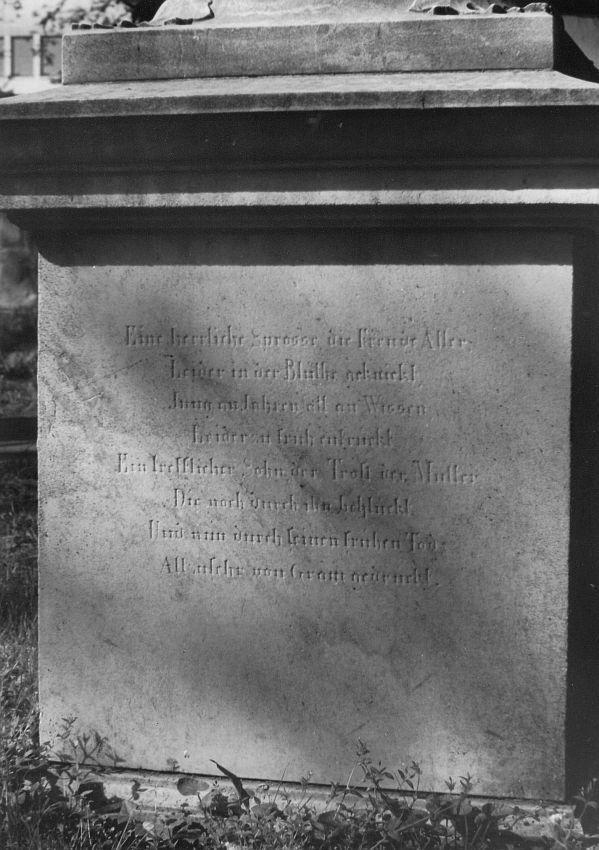 Eine herrliche Sprosse, die Freude Aller,
Leider in der Blüthe geknickt,
Jung an Jahren alt an Wissen
Leider zu früh entrückt
Ein trefflicher Sohn, der Trost der Mutter
Die noch durch ihn beglückt,
Und nun durch seinen frühen Tod
Allzusehr von Gram gedrückt.